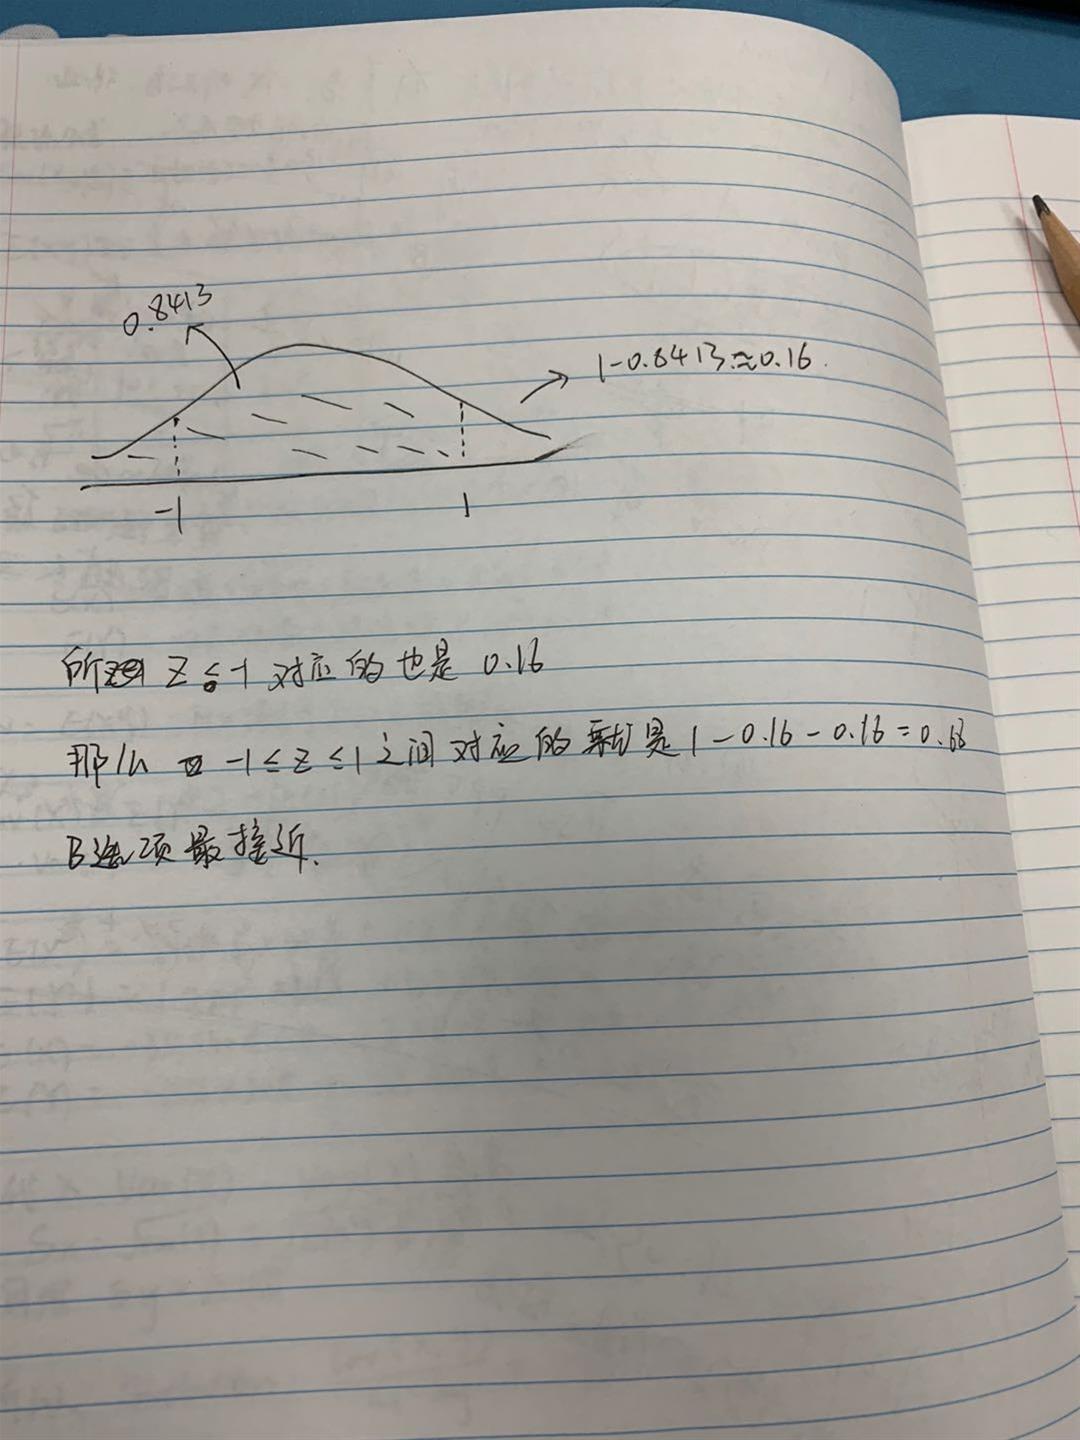 0.8413
1-0.8413≈0.16
-1
1
所以 Z≤-1 对应的也是 0.16
那么 -1≤z≤1之间对应的就是1-0.16-0.16=0.68
B选项最接近.